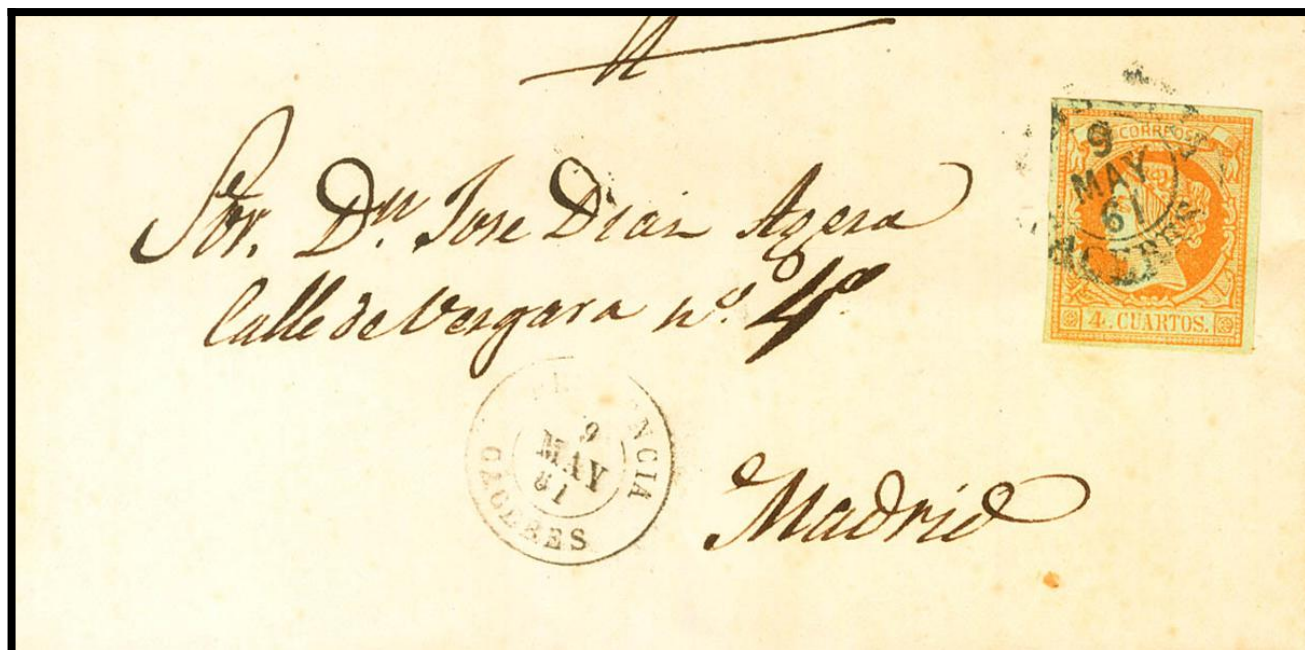 Sor. Dn. Jose Dias Agera
Calle de Vergara nº. 4º
Madrid
CORREOS
9
MAY
61
CACERES
4. CUARTOS.
9
MAY
61
CACERES